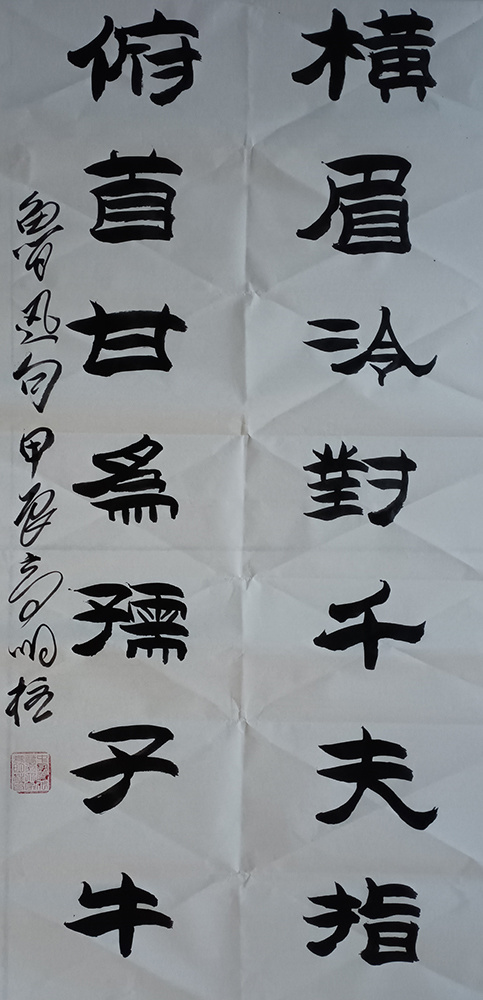 橫眉泠對千夫指
俯首甘為孺子牛
魯迅句甲辰高明